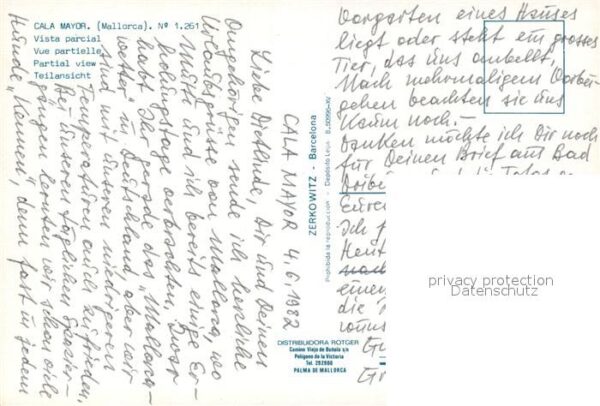 CALA MAYOR. (Mallorca). Nº 1.261
Vista parcial
Vue partielle
Partial view
Teilansicht
CALA MAJOR 4.6.1982
Liebe Diethilde, Dir und Deinen
Angehörigen sende ich herzliche
Urlaubsgrüsse von Mallorca, wo
Mutti und ich bereits einige Er-
holungstage verbrachten. Zwar
habt Ihr gerade das "Mallorca-
wetter" in Deutschland, aber wir
sind mit unseren niedrigeren
Temperaturen auch zufrieden.
Bei unseren täglichen Spazier-
gängen lernten wir schon viele
Hunde "kennen", denn fast in jedem
Vorgarten eines Hauses
liegt oder steht ein grosses
Tier, das uns anbellt.
Nach mehrmaligem Vorbei-
gehen beachten sie uns
kaum noch.-
Danken möchte ich Dir noch
für Deinen Brief aus Bad
Eure
Ich
Heut
noch
einen
die
uns
ZERKOWITZ - Barcelona
Prohibida la reproducción - Depósito Legal B.50996-XV
DISTRIBUIDORA ROTGER
Camino Viejo de Buñola s/n
Polígono de la Victoria
Tel. 292660
PALMA DE MALLORCA
privacy protection
Datenschutz